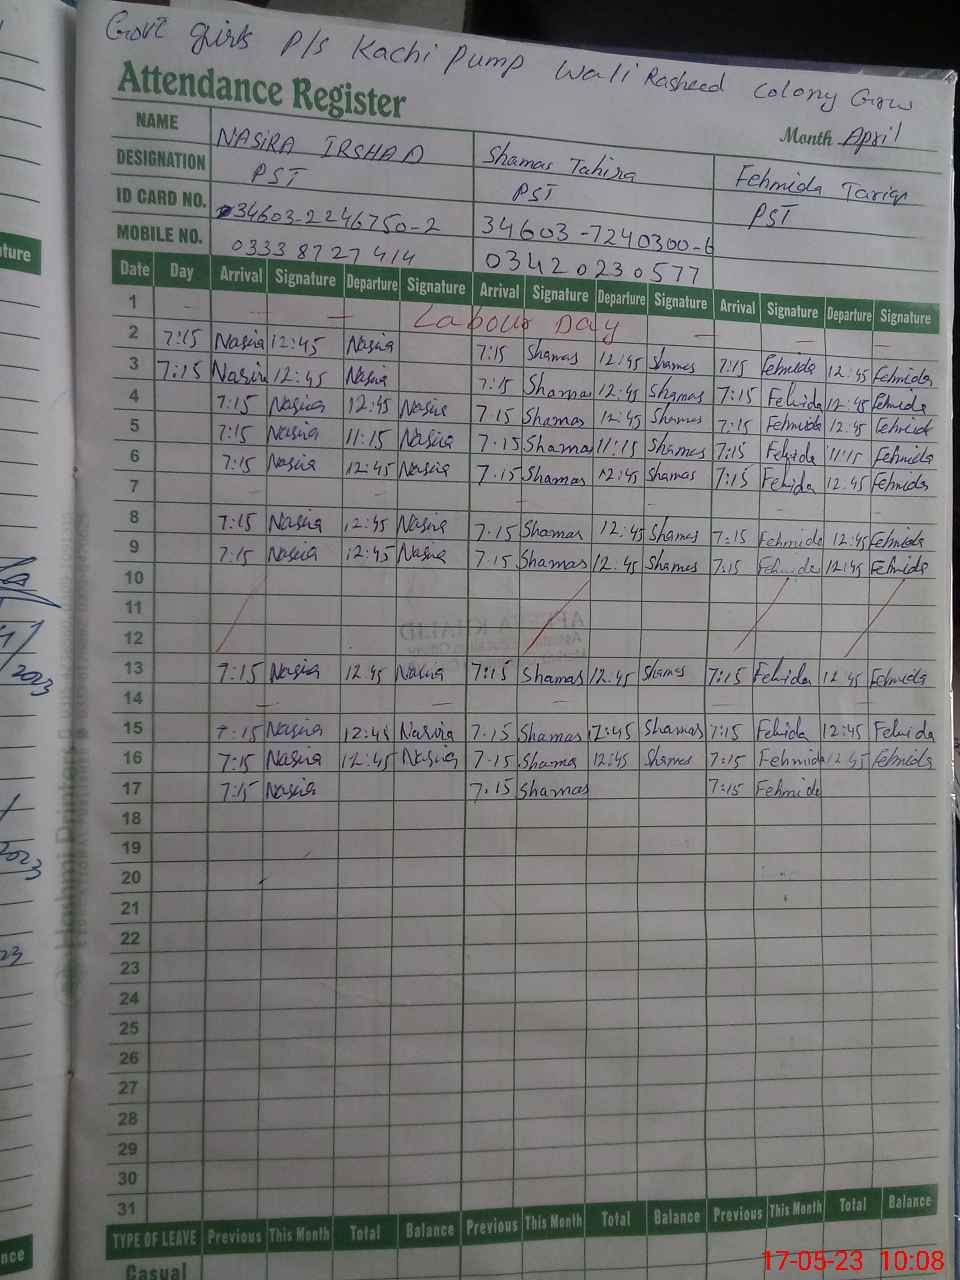 Govt girls P/s Kachi Pump Wali Rasheed Colony Grw
Attendance Register
Month April
NAME NASIRA IRSHAD Shamas Tahira Fehmida Tariq
DESIGNATION PST PST PST
ID CARD NO. 34603-2246750-2 34603-7240300-6
MOBILE NO. 0333 8727414 03420230577
Date Day Arrival Signature Departure Signature Arrival Signature Departure Signature Arrival Signature Departure Signature
1 — — Labour Day — — —
2 7:15 Nasira 12:45 Nasira 7:15 Shamas 12:45 Shamas 7:15 Fehmida 12:45 Fehmida
3 7:15 Nasira 12:45 Nasira 7:15 Shamas 12:45 Shamas 7:15 Fehida 12:45 Fehmida
4 7:15 Nasira 12:45 Nasira 7.15 Shamas 12:45 Shamas 7:15 Fehmida 12:45 Fehmida
5 7:15 Nasira 11:15 Nasira 7.15 Shamas 11:15 Shamas 7:15 Fehida 11:15 Fehmida
6 7:15 Nasira 12:45 Nasira 7.15 Shamas 12:45 Shamas 7:15 Fehida 12:45 Fehmida
7 — — — — —
8 7:15 Nasira 12:45 Nasira 7.15 Shamas 12:45 Shamas 7:15 Fehmida 12:45 Fehmida
9 7:15 Nasira 12:45 Nasira 7.15 Shamas 12:45 Shamas 7:15 Fehmida 12:45 Fehmida
10
11
12
13 7:15 Nasira 12:45 Nasira 7:15 Shamas 12:45 Shamas 7:15 Fehida 12:45 Fehmida
14 — — — — —
15 7:15 Nasira 12:45 Nasira 7.15 Shamas 12:45 Shamas 7:15 Fehida 12:45 Fehmida
16 7:15 Nasira 12:45 Nasira 7.15 Shamas 12:45 Shamas 7:15 Fehmida 12:45 Fehmida
17 7:15 Nasira 7.15 Shamas 7:15 Fehmida
18
19
20
21
22
23
24
25
26
27
28
29
30
31
TYPE OF LEAVE Previous This Month Total Balance Previous This Month Total Balance Previous This Month Total Balance
Casual
17-05-23 10:08